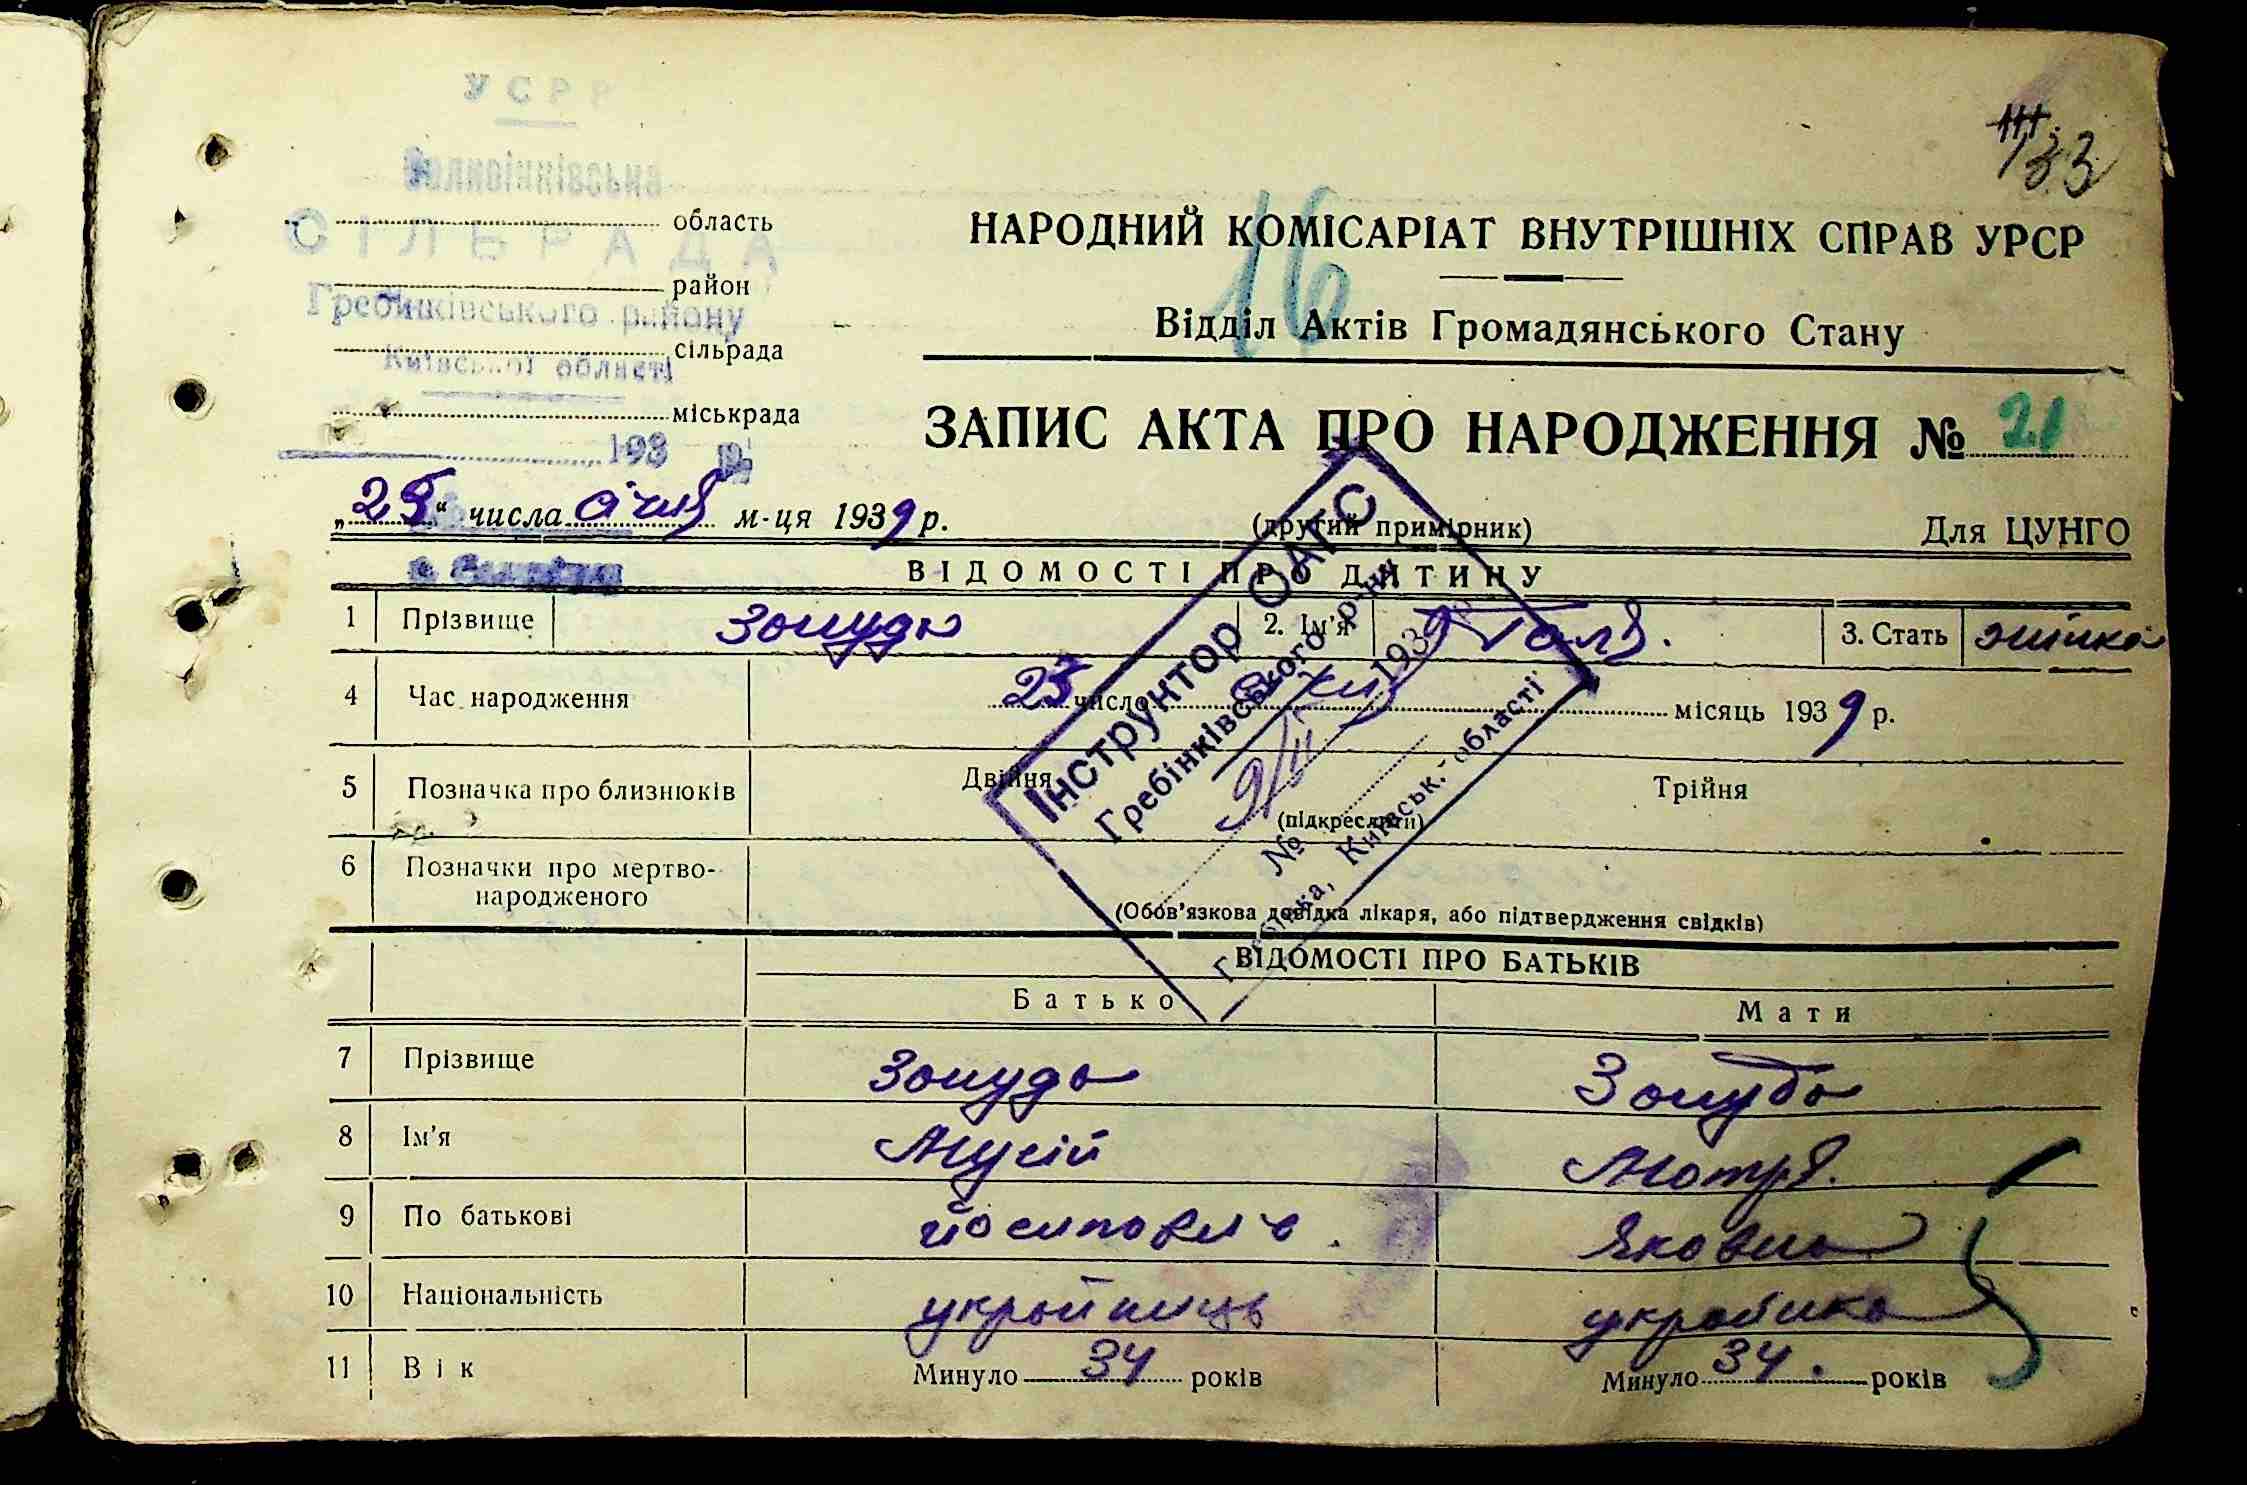 УСРР
СІЛЬРАДА
область
район
Гребінківського району
сільрада
Київської області
міськрада
193 р.
133
16
НАРОДНИЙ КОМІСАРІАТ ВНУТРІШНІХ СПРАВ УРСР
Відділ Актів Громадянського Стану
ЗАПИС АКТА ПРО НАРОДЖЕННЯ № 21
„25“ числа січня м-ця 1939 р.
(другий примірник)
Для ЦУНГО
ВІДОМОСТІ ПРО ДИТИНУ
1 Прізвище 2. Ім'я Галя. 3. Стать жінка
4 Час народження 23 число січня місяць 1939 р.
5 Позначка про близнюків Двійня Трійня
(підкреслити)
6 Позначки про мертво-
народженого
(Обов'язкова довідка лікаря, або підтвердження свідків)
Інструктор ОАГС
Гребінківського р-ну
1939 р.
№
Гребінка, Київськ. області
ВІДОМОСТІ ПРО БАТЬКІВ
Батько Мати
7 Прізвище
8 Ім'я Мусій Мотря.
9 По батькові Йосипович. Яковна
10 Національність українець українка
11 Вік Минуло 34 років Минуло 34. років